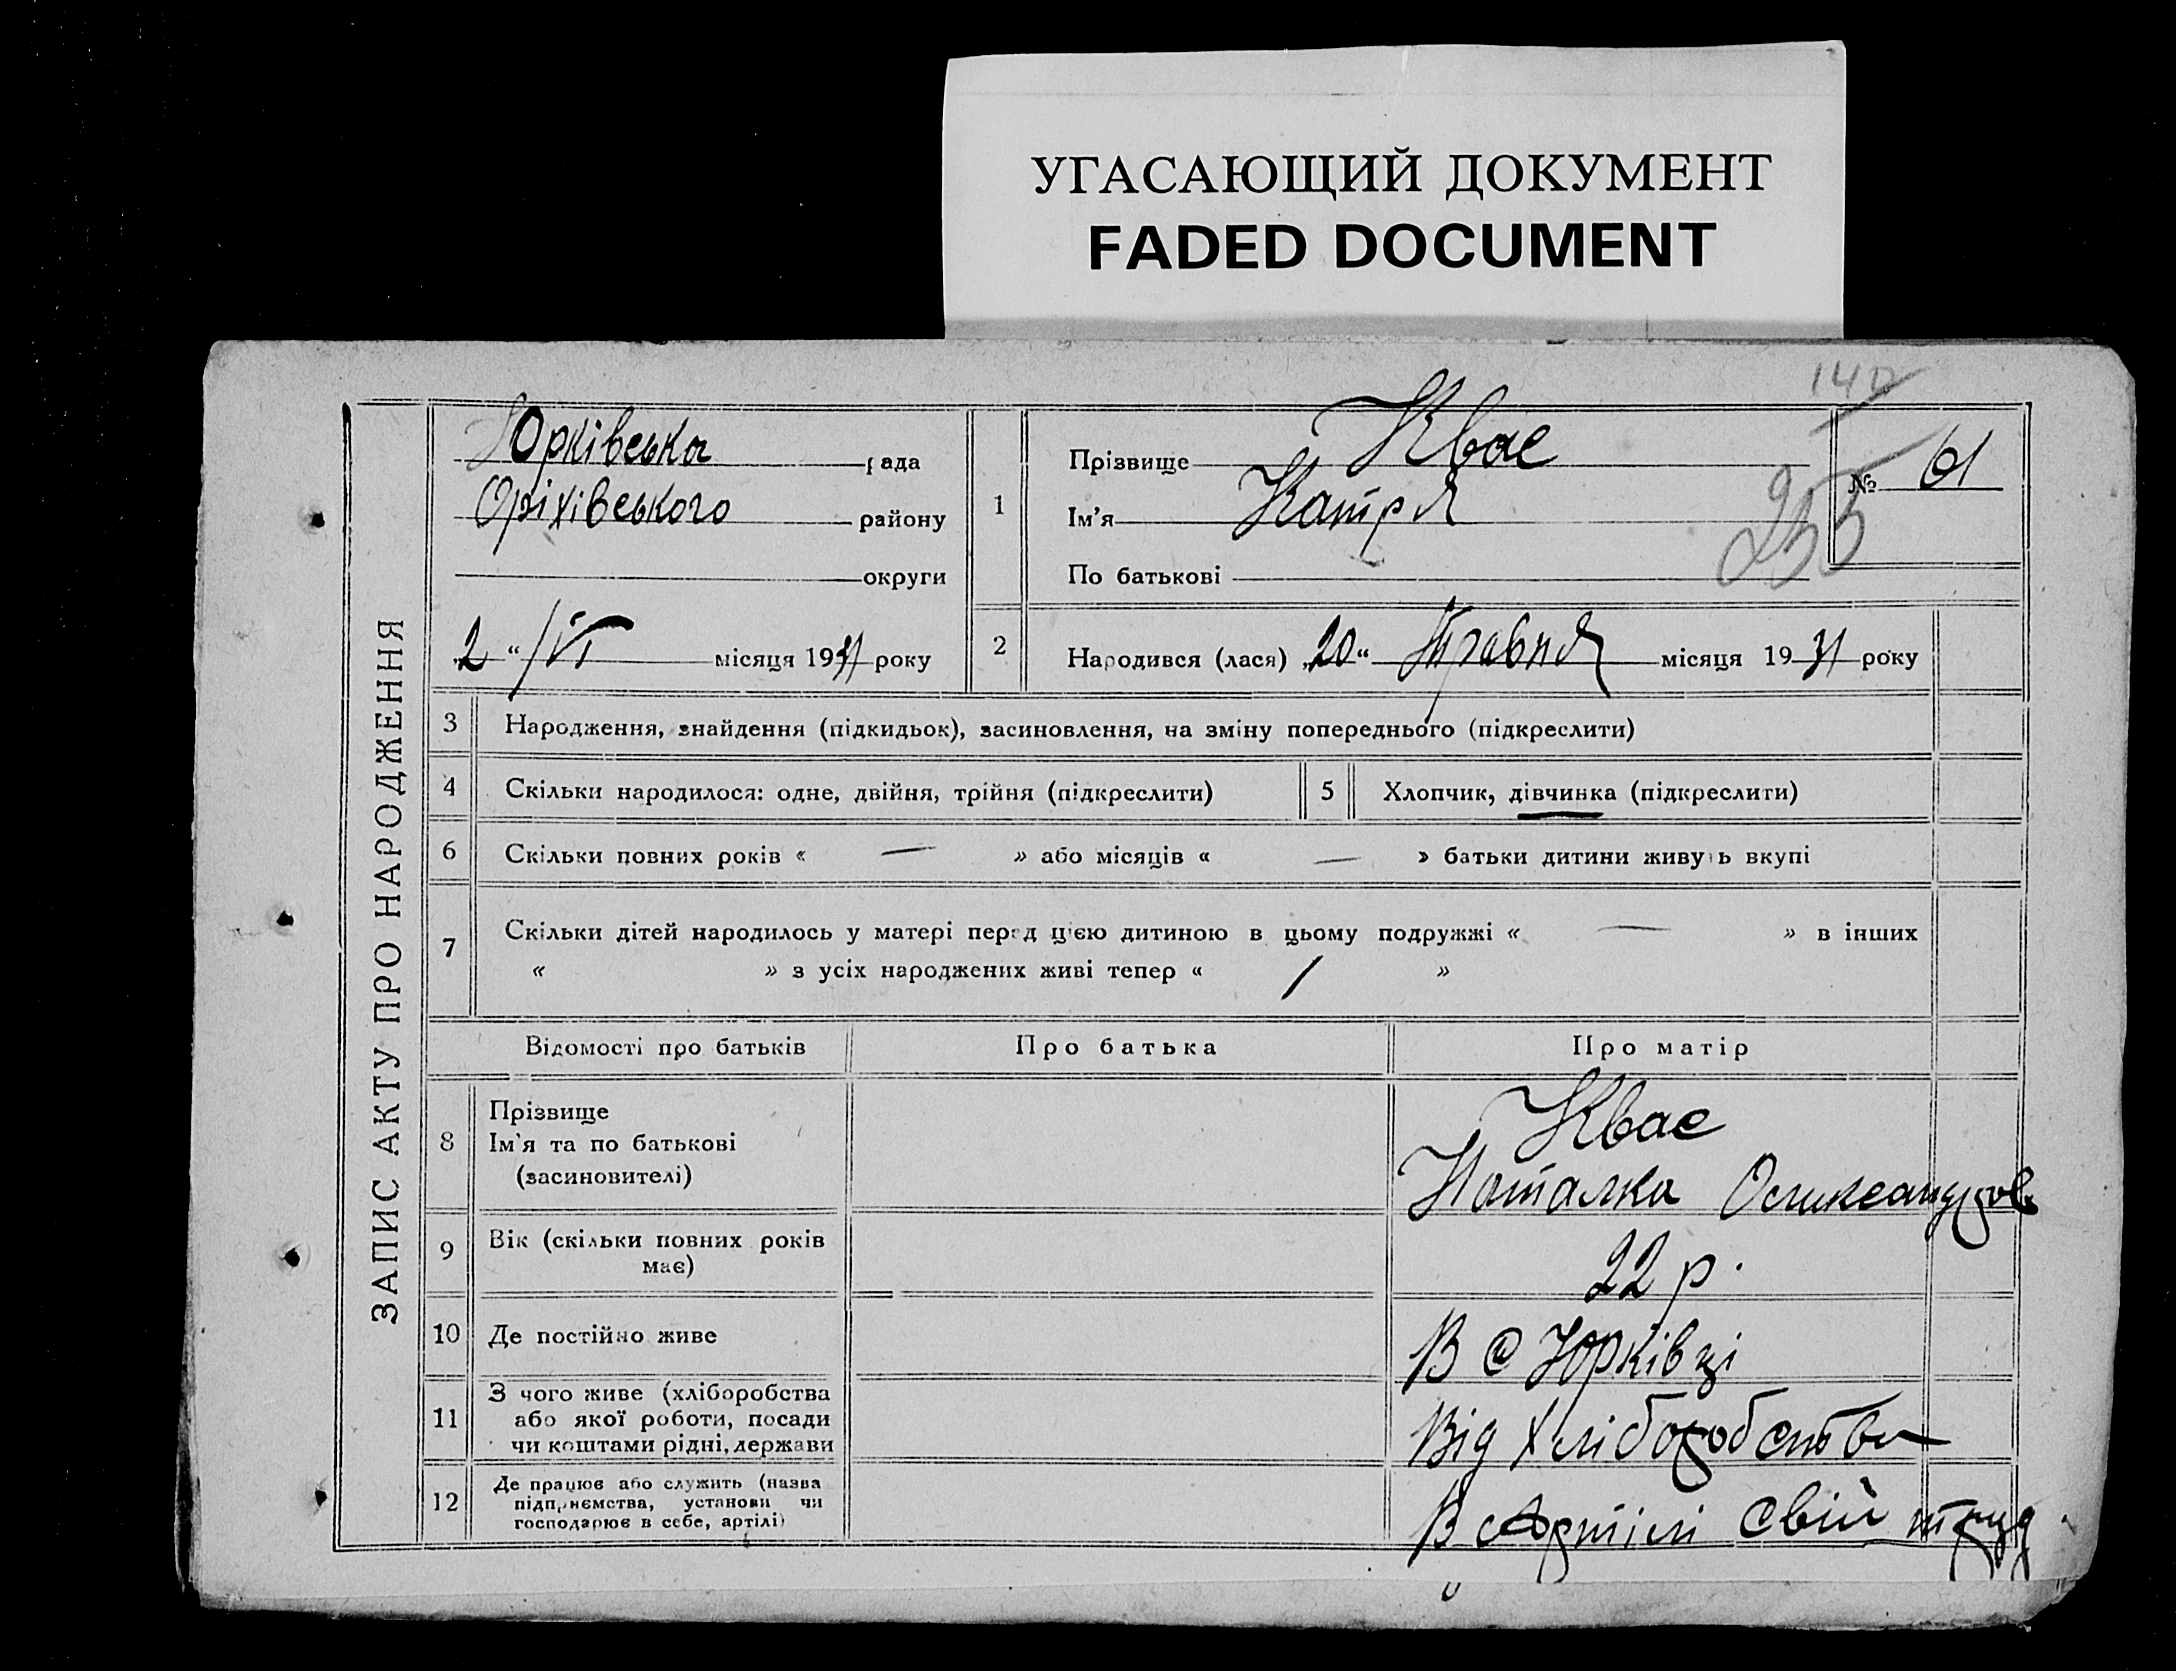 УГАСАЮЩИЙ ДОКУМЕНТ
FADED DOCUMENT
ЗАПИС АКТУ ПРО НАРОДЖЕННЯ
140
Юрківська рада
Оріхівського району
округи
„2“ /VI місяця 1931 року
1
Прізвище Квас
Ім'я Катря
По батькові
№ 61
255
2
Народився (лася) „20“ Травня місяця 1931 року
3 Народження, знайдення (підкидьок), засиновлення, на зміну попереднього (підкреслити)
4 Скільки народилося: одне, двійня, трійня (підкреслити) 5 Хлопчик, дівчинка (підкреслити)
6 Скільки повних років « — » або місяців « — » батьки дитини живуть вкупі
7 Скільки дітей народилось у матері перед цією дитиною в цьому подружжі « — » в інших
« » з усіх народжених живі тепер « / »
Відомості про батьків Про батька Про матір
8 Прізвище
Ім'я та по батькові
(засиновителі)
Квас
Наталка Олександров
9 Вік (скільки повних років
має)
22 р.
10 Де постійно живе
В с Юрківці
11 З чого живе (хліборобства
або якої роботи, посади
чи коштами рідні, держави
Від хліборобства
12 Де працює або служить (назва
підприємства, установи чи
господарює в себе, артілі)
В с Артілі Свій труд